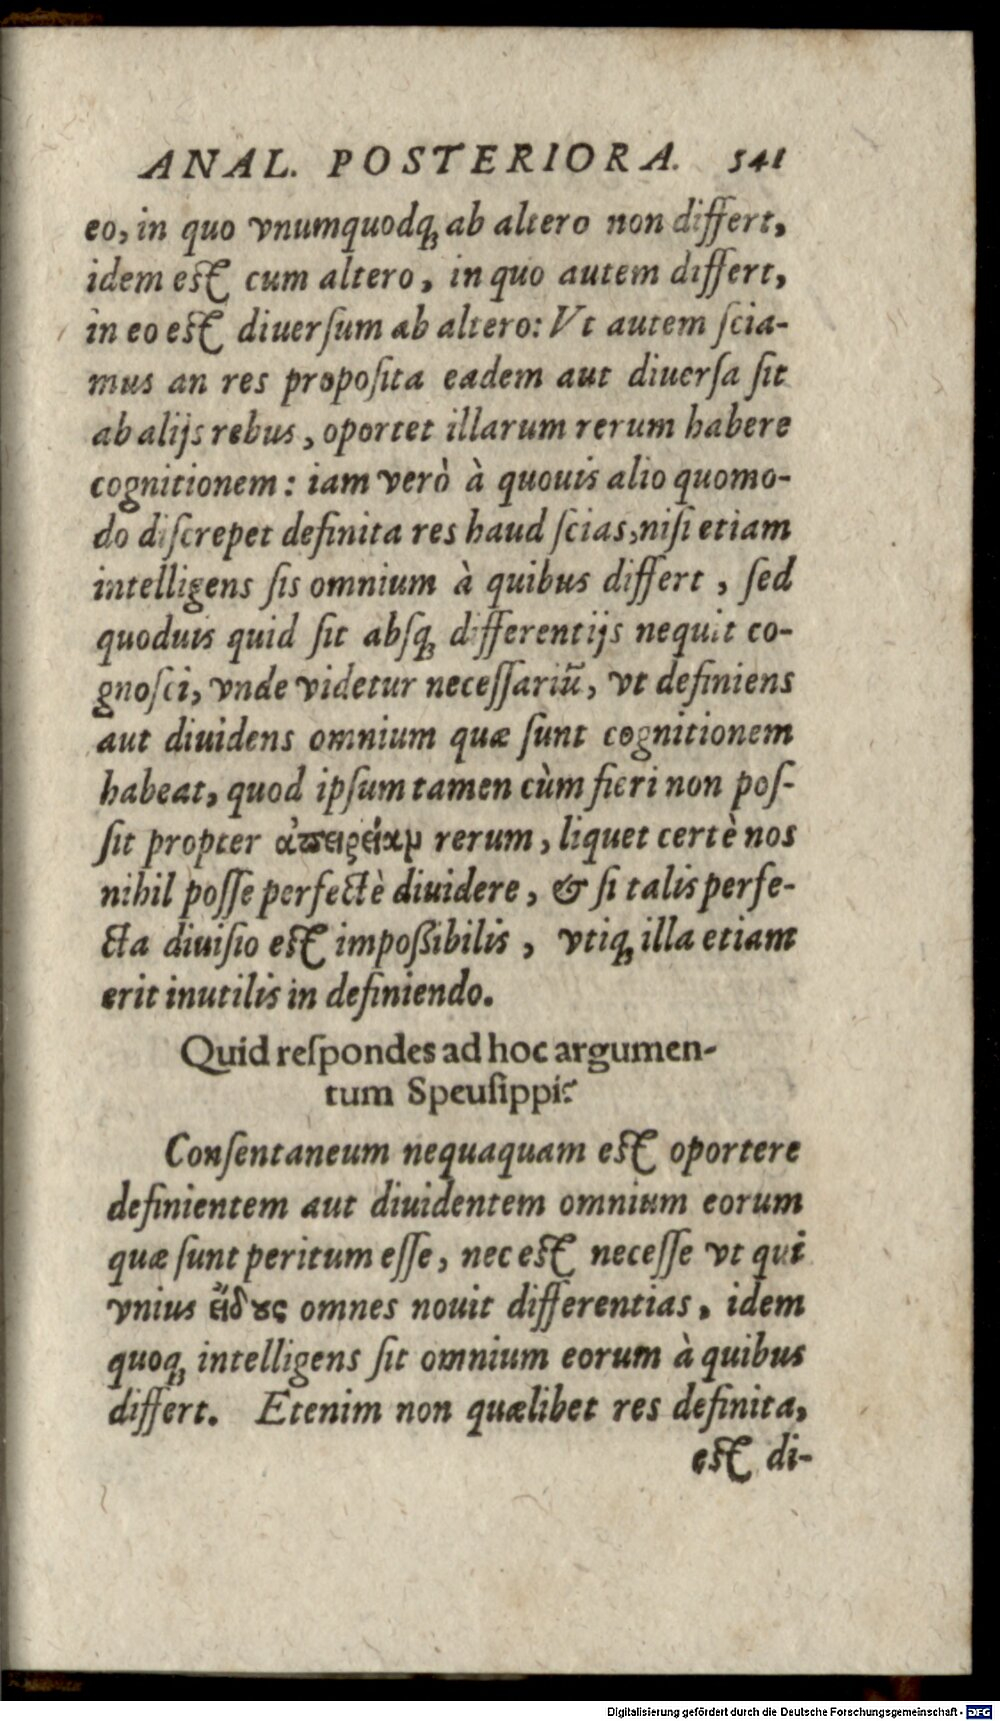 ANAL. POSTERIORA. 541
eo, in quo vnumquodq; ab altero non differt,
idem est cum altero, in quo autem differt,
in eo est diuerſum ab altero: Vt autem ſcia-
mus an res propoſita eadem aut diuerſa ſit
ab alijs rebus, oportet illarum rerum habere
cognitionem: iam verò à quouis alio quomo-
do diſcrepet definita res haud ſcias, niſi etiam
intelligens ſis omnium à quibus differt, ſed
quoduis quid ſit abſq; differentijs nequit co-
gnoſci, vnde videtur neceſſariū, vt definiens
aut diuidens omnium quæ ſunt cognitionem
habeat, quod ipſum tamen cùm fieri non poſ-
ſit propter ἀπειρείαμ rerum, liquet certè nos
nihil poſſe perfectè diuidere, & ſi talis perfe-
cta diuiſio est impoßibilis, vtiq; illa etiam
erit inutilis in definiendo.
Quid reſpondes ad hoc argumen-
tum Speuſippi?
Conſentaneum nequaquam est oportere
definientem aut diuidentem omnium eorum
quæ ſunt peritum eſſe, nec est neceſſe vt qui
vnius εἴδους omnes nouit differentias, idem
quoq; intelligens ſit omnium eorum à quibus
differt. Etenim non quælibet res definita,
est di-
Digitalisierung gefördert durch die Deutsche Forschungsgemeinschaft - DFG